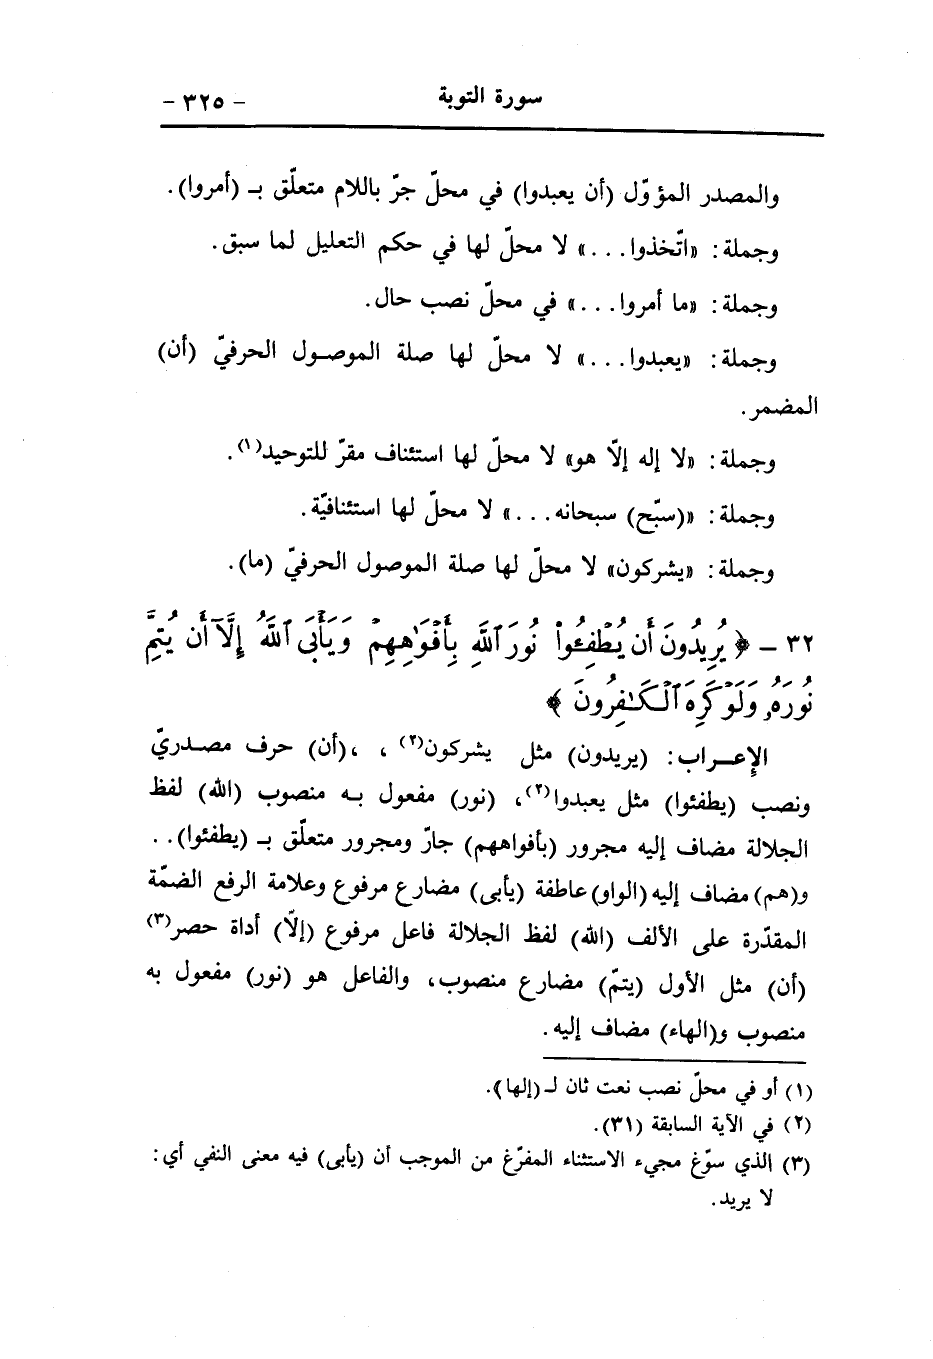 سورة التوبة - ٣٢٥ -
والمصدر المؤوّل (أن يعبدوا) في محلّ جرّ باللام متعلّق بـ (أمروا).
وجملة: «اتّخذوا...» لا محلّ لها في حكم التعليل لما سبق.
وجملة: «ما أمروا...» في محلّ نصب حال.
وجملة: «يعبدوا...» لا محلّ لها صلة الموصول الحرفيّ (أن)
المضمر.
وجملة: «لا إله إلّا هو» لا محلّ لها استئناف مقرّ للتوحيد(١).
وجملة: «(سبّح) سبحانه...» لا محلّ لها استئنافيّة.
وجملة: «يشركون» لا محلّ لها صلة الموصول الحرفيّ (ما).
٣٢ - ﴿يُرِيدُونَ أَن يُطْفِـُٔوا۟ نُورَ ٱللَّهِ بِأَفْوَٰهِهِمْ وَيَأْبَى ٱللَّهُ إِلَّآ أَن يُتِمَّ
نُورَهُۥ وَلَوْ كَرِهَ ٱلْكَـٰفِرُونَ﴾
الإعراب: (يريدون) مثل يشركون(٢) ، ،(أن) حرف مصدريّ
ونصب (يطفئوا) مثل يعبدوا(٢)، (نور) مفعول به منصوب (الله) لفظ
الجلالة مضاف إليه مجرور (بأفواههم) جارّ ومجرور متعلّق بـ (يطفئوا)..
و(هم) مضاف إليه (الواو) عاطفة (يأبى) مضارع مرفوع وعلامة الرفع الضمّة
المقدّرة على الألف (الله) لفظ الجلالة فاعل مرفوع (إلّا) أداة حصر(٣)
(أن) مثل الأول (يتمّ) مضارع منصوب، والفاعل هو (نور) مفعول به
منصوب و(الهاء) مضاف إليه.
(١) أو في محلّ نصب نعت ثان لـ (إلها).
(٢) في الآية السابقة (٣١).
(٣) الذي سوّغ مجيء الاستثناء المفرّغ من الموجب أن (يأبى) فيه معنى النفي أي:
لا يريد.